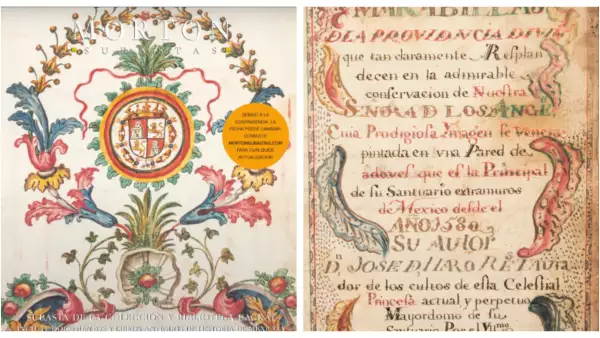 MORTON
SUBASTAS
DEBIDO A LA
CONTINGENCIA, LA
FECHA PUEDE CAMBIAR.
CONSULTE
MORTONSUBASTAS.COM
PARA CUALQUIER
ACTUALIZACIÓN
SUBASTA DE LA COLECCIÓN Y BIBLIOTECA
MARABILLAS
D LA PROVIDENCIA DIVI
que tan claramente Resplan
decen en la admirable
conservacion de Nuestra
SEÑORA D LOS ANGE
Cuia Prodigiosa imagen se venera
pintada en vna Pared de
adoves que es la Principal
de su Santuario extramuros
de Mexico desde el
AÑO 1580
SU AUTOR
D. JOSE D HARO
dor de los cultos de esta Celestial
Princesa actual y perpetuo
Mayordomo de su
Santuario Por el